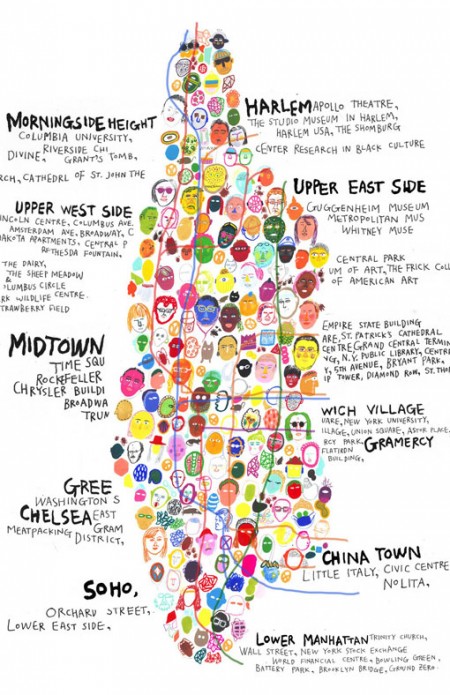 HARLEM APOLLO THEATRE,
THE STUDIO MUSEUM IN HARLEM,
HARLEM USA, THE SHOMBURG
CENTER RESEARCH IN BLACK CULTURE
MORNINGSIDE HEIGHT
COLUMBIA UNIVERSITY,
RIVERSIDE CHI
DIVINE, GRANT'S TOMB,
RCH, CATHEDRL OF ST. JOHN THE
UPPER EAST SIDE
GUGGENHEIM MUSEUM
METROPOLITAN MUS
WHITNEY MUSE
UPPER WEST SIDE
INCOLN CENTRE, COLUMBUS AVE.
AMSTERDAM AVE. BROADWAY, C
DAKOTA APARTMENTS, CENTRAL P
BETHESDA FOUNTAIN.
CENTRAL PARK
UM OF ART, THE FRICK COLL
OF AMERICAN ART
THE DAIRY,
THE SHEEP MEADOW
&
OLUMBUS CIRCLE
RK WILDLIFE CENTRE.
TRAWBERRY FIELD
EMPIRE STATE BUILDING
ARE, ST. PATRICK'S CATHEDRAL
CENTRE, GRAND CENTRAL TERMIN
N.Y. PUBLIC LIBRARY, CENTRE
Y, 5TH AVENUE, BRYANT PARK.
IP TOWER, DIAMOND ROW, ST. THO
MIDTOWN
TIME SQU
ROCKEFELLER
CHRYSLER BUILDI
BROADWA
TRUN
WICH VILLAGE
UARE, NEW YORK UNIVERSITY,
ILLAGE, UNION SQUARE, ASTOR PLACE.
RCY PARK, GRAMERCY
FLATIRON
BUILDING,
GREE
WASHINGTON S
CHELSEA EAST
GRAM
MEATPACKING DISTRICT,
CHINA TOWN
LITTLE ITALY, CIVIC CENTRE
NOLITA,
SOHO,
ORCHARD STREET,
LOWER EAST SIDE,
LOWER MANHATTAN TRINITY CHURCH,
WALL STREET, NEW YORK STOCK EXCHANGE
WORLD FINANCIAL CENTRE, BOWLING GREEN,
BATTERY PARK, BROOKLYN BRIDGE, GROUND ZERO.